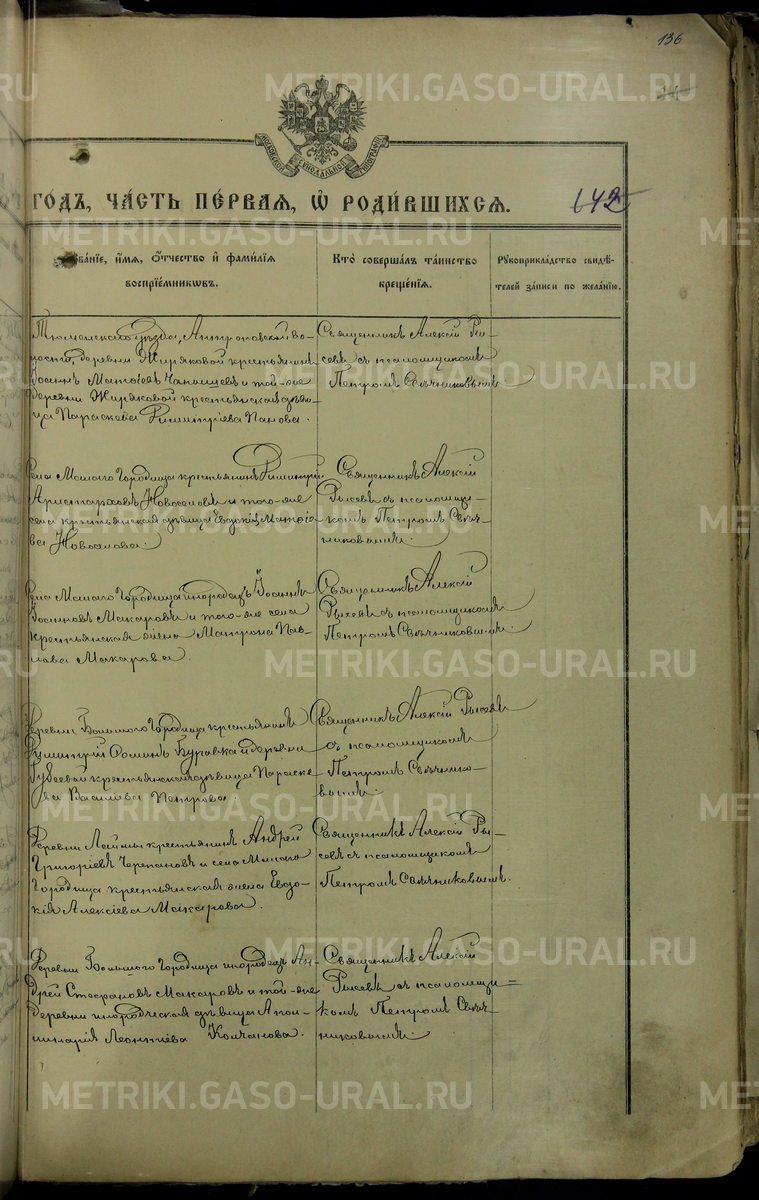 136
МОСКОВСКОЙ СѴНОДАЛЬНОЙ ТИПОГРАФІИ
ГО́ДЪ, ЧА́СТЬ ПЕ́РВАѦ, Ѽ РОДИ́ВШИХСѦ.
642
ЗВА́НІЕ, И҆́МѦ, Ѻ҆́ТЧЕСТВО И҆ ФАМИ́ЛІѦ
ВОСПРІЕ́МНИКѠВЪ.
КТО̀ СОВЕРША́ЛЪ ТА́ИНСТВО
КРЕЩЕ́НІѦ.
РꙋКОПРИКЛА́ДСТВО СВИДѢ́-
ТЕЛЕЙ ЗА́ПИСИ ПО ЖЕЛА́НІЮ.
Тюменскаго уѣзда, Антроповской во-
лости, деревни Жиряковой крестьянинъ
Іоаннъ той-же
деревни Жиряковой крестьянская дѣви-
ца Параскева Димитріева Панова.
Священникъ Алексій Ры-
севъ съ псаломщикомъ
Петромъ Свѣчниковымъ.
Села Малаго Городища крестьянинъ Димитрій
Аристарховъ Новоселовъ и того-же
села крестьянская дѣвица Евдокія Матѳіе-
ва Новоселова.
Священникъ Алексій
Рысевъ съ псаломщи-
комъ Петромъ Свѣч-
никовымъ.
Села Малаго Городища инородецъ Іоаннъ
Іоанновъ Макаровъ и того-же села
крестьянская жена Матрона Пав-
лова Макарова.
Священникъ Алексій
Рысевъ съ псаломщикомъ
Петромъ Свѣчниковымъ.
Деревни Большого Городища крестьянинъ
Димитрій Ѳоминъ Буравка и деревни
Губеевой крестьянская дѣвица Параске-
ва Василіева Петрова.
Священникъ Алексій Рысевъ
съ псаломщикомъ
Петромъ Свѣчнико-
вымъ.
Деревни крестьянинъ Андрей
Григоріевъ Черепановъ и села Малаго
Городища крестьянская жена Евдо-
кія Алексіева Макарова.
Священникъ Алексій Ры-
севъ съ псаломщикомъ
Петромъ Свѣчниковымъ.
Деревни Большого Городища инородецъ Ан-
дрей Стефановъ Макаровъ и той-же
деревни инородческая дѣвица Апол-
линарія Леонтіева Колчанова.
Священникъ Алексій
Рысевъ съ псаломщи=
комъ Петромъ Свѣч-
никовымъ.
METRIKI.GASO-URAL.RU